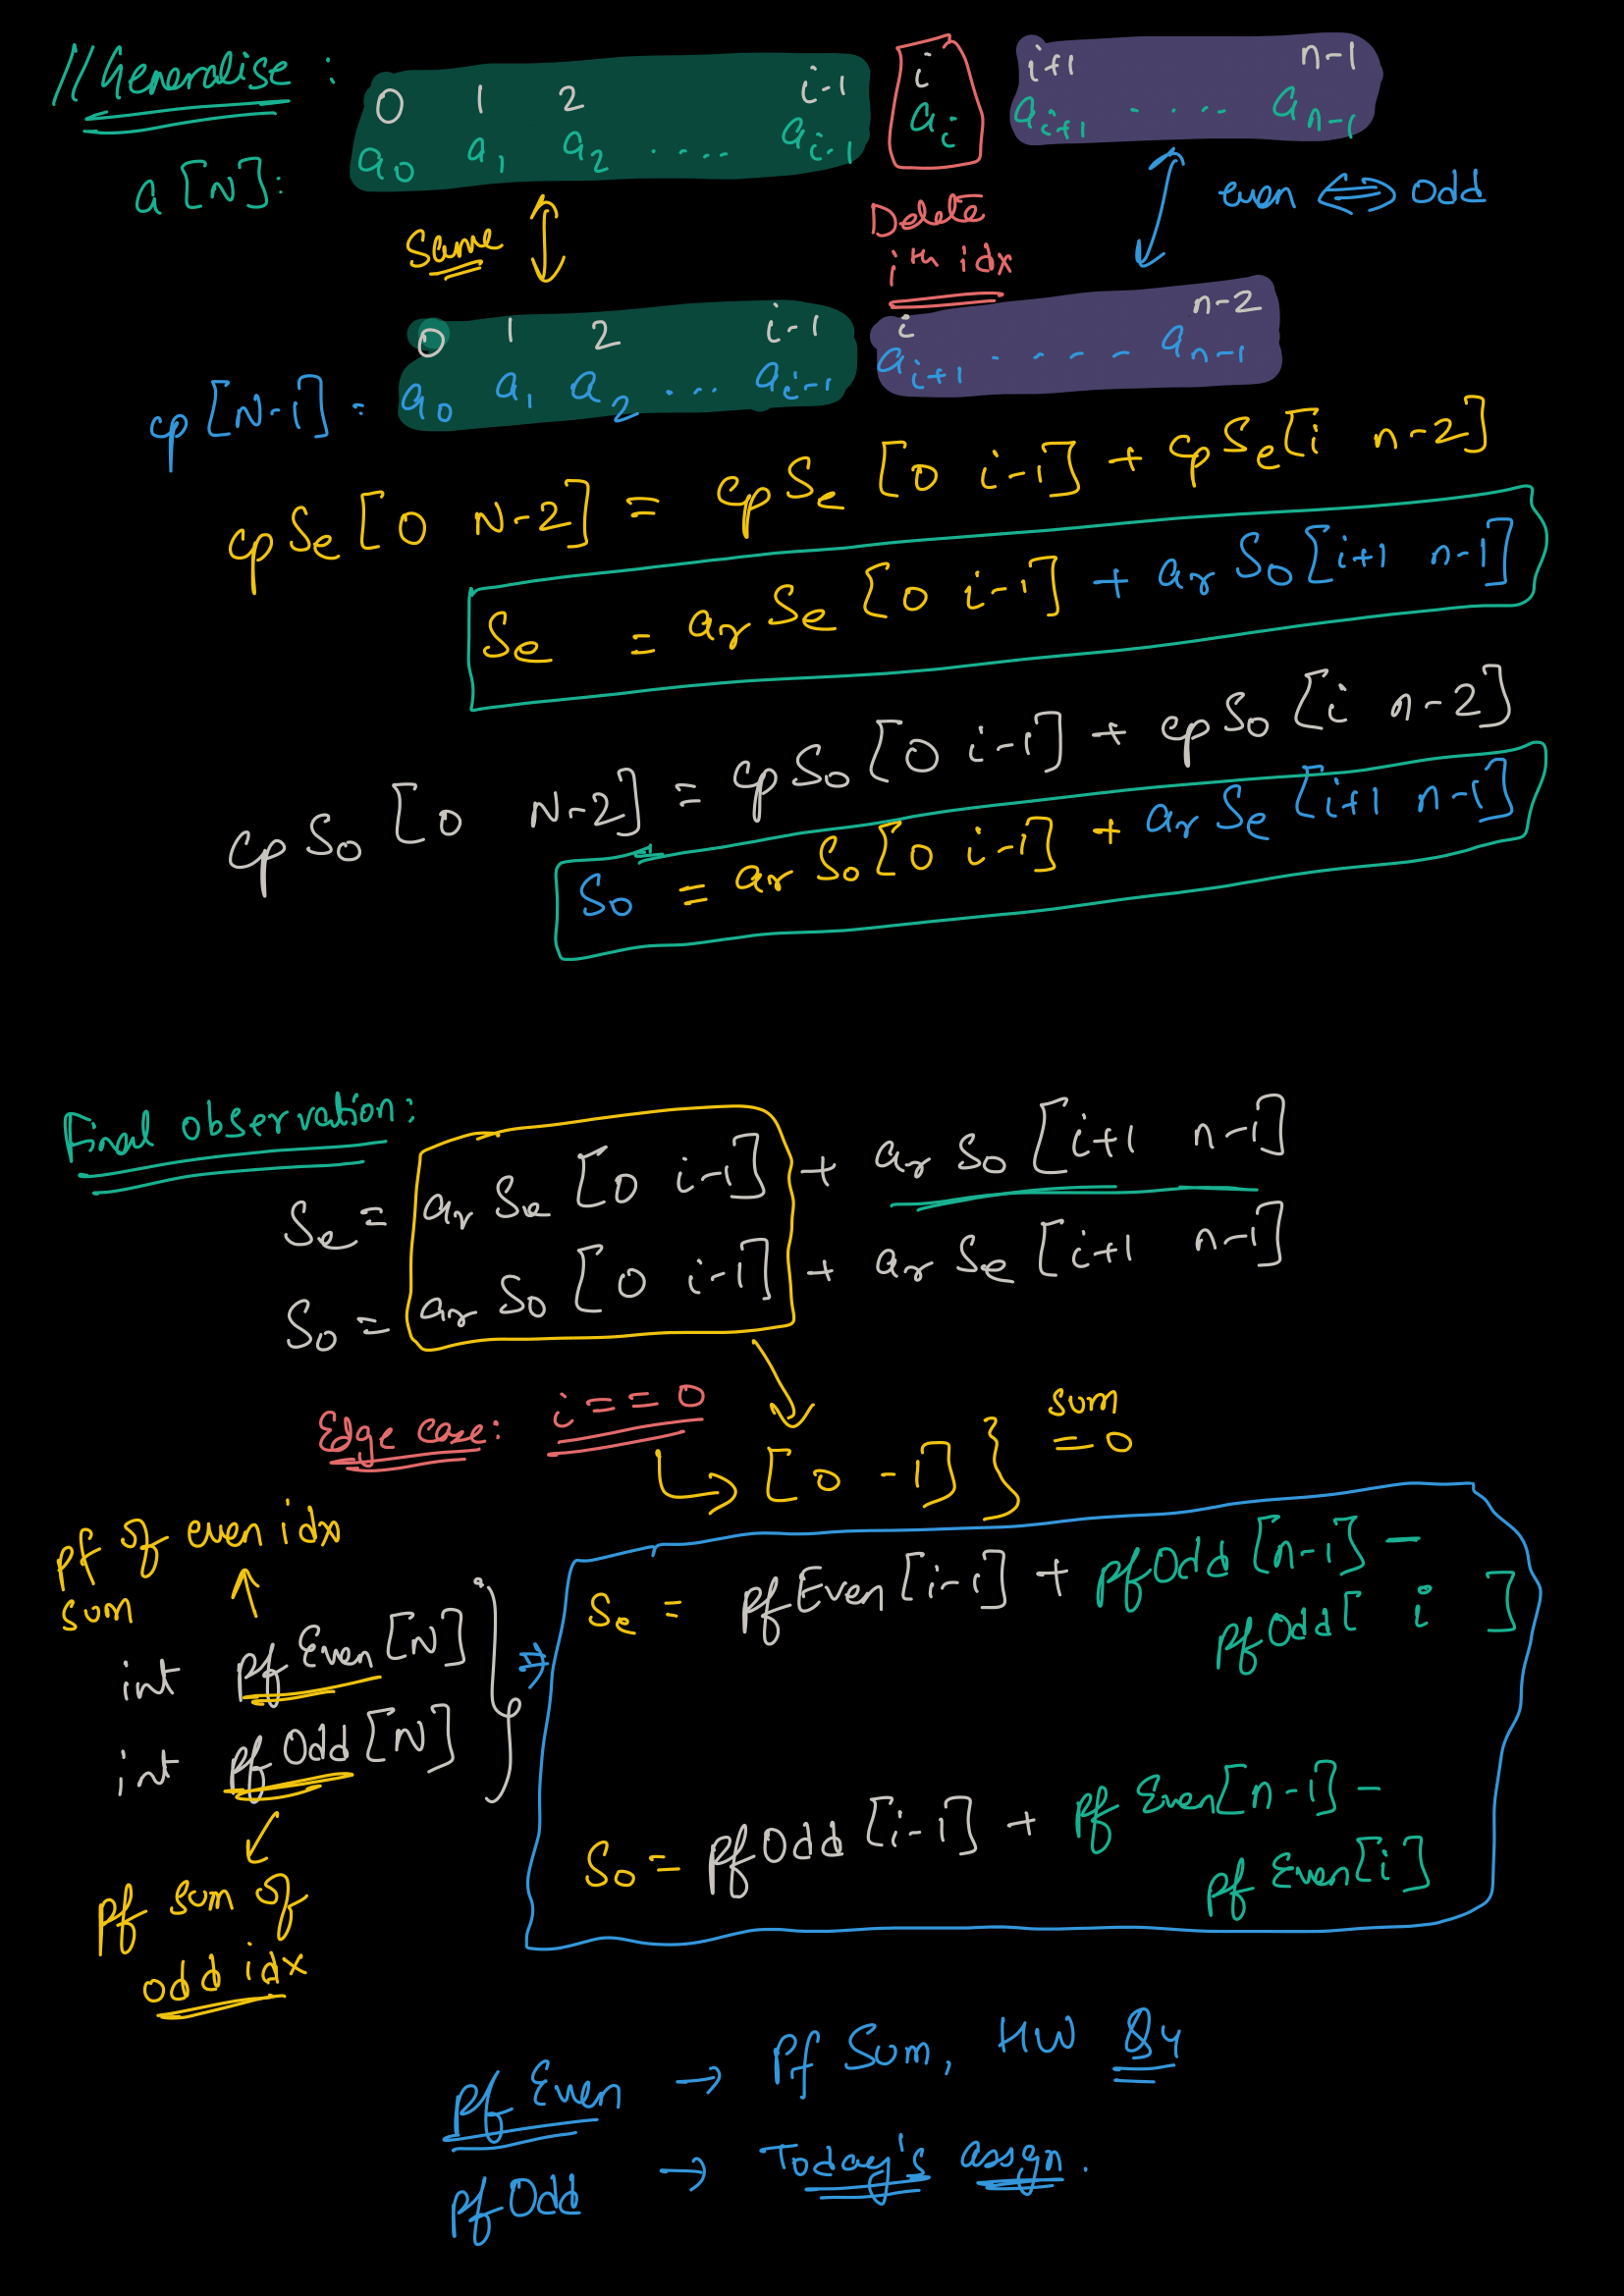 //Generalise :
0 1 2 i-1 i i+1 n-1
a[N]: a0 a1 a2 .... ai-1 ai ai+1 .... an-1
Same
Delete
ith idx
even ⟺ odd
0 1 2 i-1 i n-2
cp[N-1] = a0 a1 a2 ... ai-1 ai+1 ..... an-1
cpSe [0 N-2] = cpSe [0 i-1] + cpSe[i n-2]
Se = ar Se [0 i-1] + ar So [i+1 n-1]
cpSo [0 N-2] = cpSo [0 i-1] + cpSo [i n-2]
So = ar So [0 i-1] + ar Se [i+1 n-1]
Final observation:
Se = ar Se [0 i-1] + ar So [i+1 n-1]
So = ar So [0 i-1] + ar Se [i+1 n-1]
Edge case: i==0
[0 -1] } sum
= 0
pf of even idx
sum
int pfEven[N]
int pfOdd[N]
pf sum of
odd idx
Se = pfEven[i-1] + pfOdd[n-1] -
pfOdd[ i ]
So = pfOdd[i-1] + pfEven[n-1] -
pfEven[i]
pfEven → Pf Sum, HW Q4
pfOdd → Today's assgn.